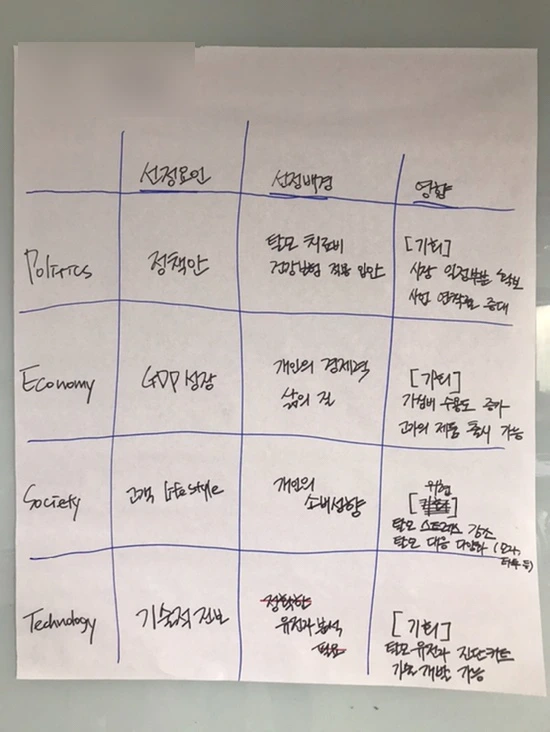 선정요인 선정배경 영향
Politics 정책안 탈모 치료비
건강보험 적용 입안
[기회]
시장 일정부분 확보
사업 안정권 증대
Economy GDP성장 개인의 경제력
삶의 질
[기회]
가성비 수용도 증가
고가의 제품 출시 가능
Society 고객 life style 개인의
소비성향
위협
[ ]
탈모 스트레스 감소
탈모 대응 다양화 (모자,
등)
Technology 기술적 진보 정확한
유전자 분석
[기회]
탈모 유전자 진단키트
기술 개발 가능